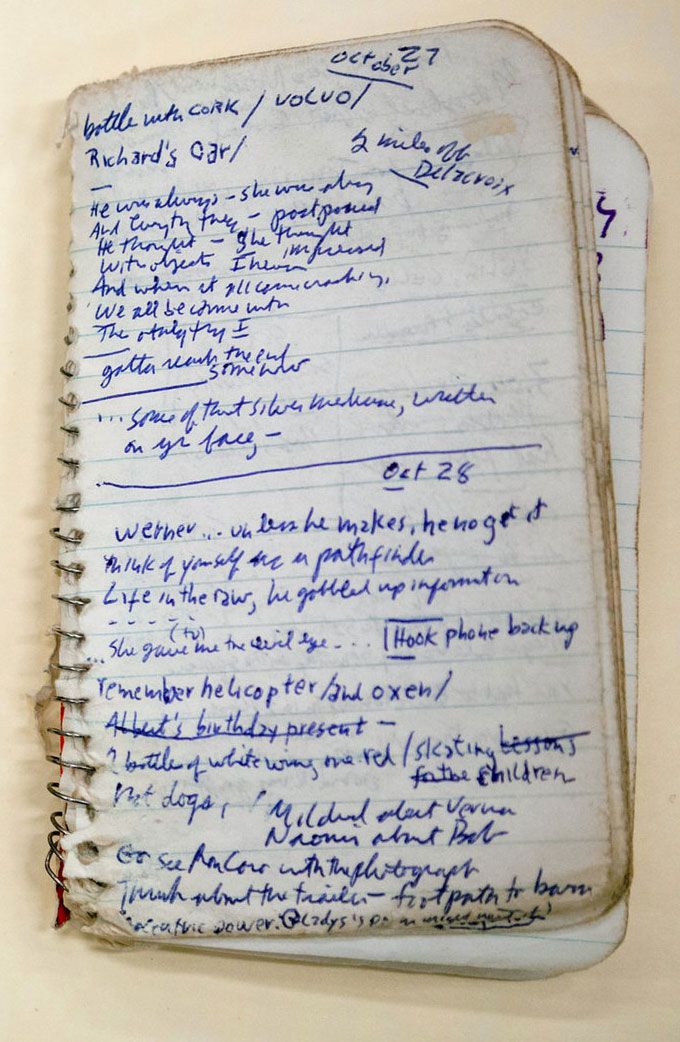 October 27
bottle with cork / volvo /
Richard's Car /
2 miles off
Delacroix
He was always – she was always
And
– postponed
He thought – she thought
With objects I never impressed
And when it all came crashing,
We all become
The I
gotta reach the end
somehow
... some of that silver medicine, written
on yr face, –
Oct 28
Werner ... unless he makes, he no get it
think of yourself as a pathfinder
Life in the raw, he gobbled up information
(to)
... She gave me the evil eye ... Hook phone back up
remember helicopter / and oxen /
Albert's birthday present –
bottle of white wine, one red / skating lessons
for the children
Hot dogs,
Mildred about Verna
Naomi about Bob
Go see Ron with the photograph
about the trailer – footpath to barn
power. Gladys's